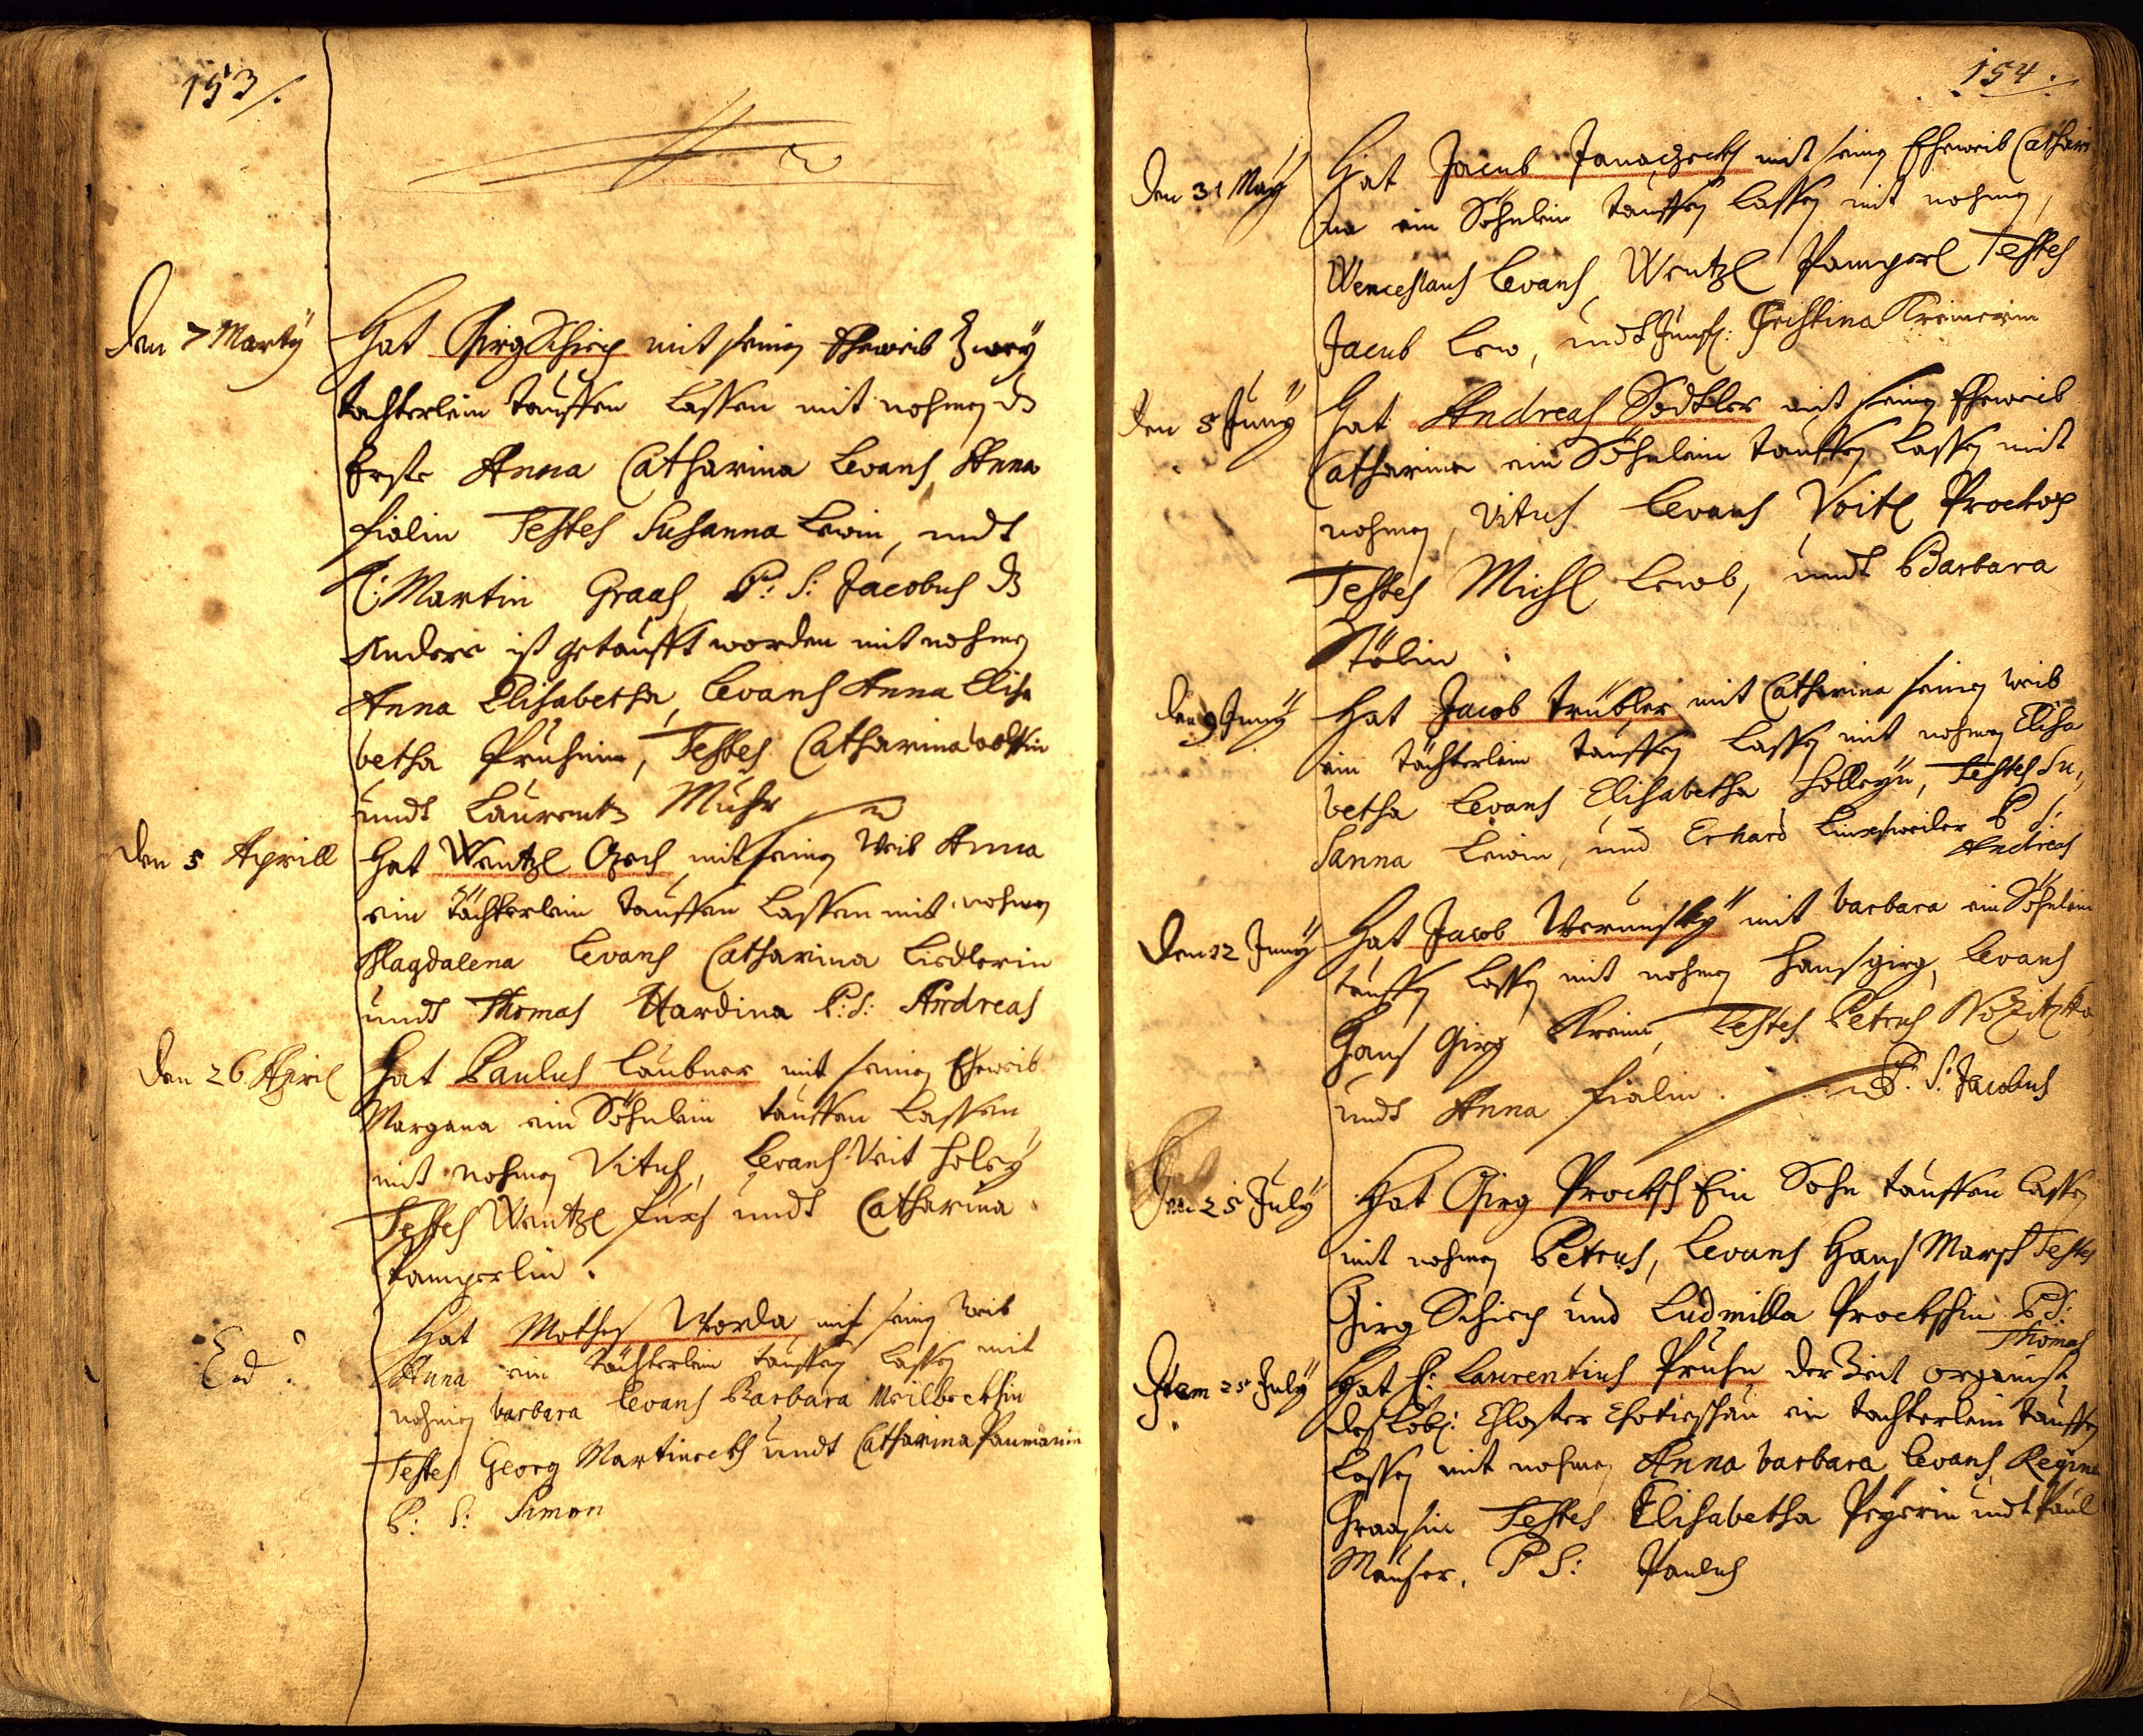 153/.
Den 7 Marty
Hat Girg Schiech mit seinen Eheweib Zwey
tächterlein tauffen lassen mit nohmen dz
Erste Anna Catharina Levans, Anna
fialin Testes Susanna Lewin, undt
H: Martin Graas, P: S: Jacobus dz
Andere ist getaufft worden mit nohmen
Anna Elisabetha, Levans Anna Elisa
betha Pruhnin, Testes Catharina
undt Laurentz Muhr
Den 5 Aprill
Hat Wentzl mit seinen Weib Anna
ein tächterlein tauffen lassen mit nohmen
Magdalena Levans Catharina Liedlerin
undt Thomas Hardina P: S: Andreas
Den 26 April
Hat Paulus Laubner mit seinen Eheweib
Margana ein Söhnlein tauffen lassen
mit nohmen Vitus, Levans Veit Holey
Testes Wentzl fuxs undt Catharina
Pamperlin.
Eod:
Hat Mathes Worda mit seinen Weib
Anna ein tächterlein tauffen lassen mit
nohmen barbara Levans Barbara
Testes Georg Martineckh undt Catharina Paumänin
P: S: Simon
154.
Den 31 May
Hat Jacub Janaczeckh mit seinen Eheweib Cathari
na ein Söhnlein tauffen lassen mit nohmen,
Wenceslaus Levans, Wentzl Pamperl Testes
Jacub Lew, undt Junfr: Christina Kreinerin
Den 5 Juny
Hat Andreas Sedtler mit seinen Eheweib
Catharina ein Söhnlein tauffen lassen mit
nohmen, Vitus Levans Voitl Prockop
Testes Michl Lewb, undt Barbara
Tölin
Den 9 Juny
Hat Jacob Trübler mit Catharina seinen Weib
ein tächterlein tauffen lassen mit nohmen Elisa
betha Levans Elisabetha Holleyn, Testes Su,
sanna Lewin, und Erhard Linxsweiler P S:
Andreas
Den 22 Juny
Hat Jacob Werunsky mit barbara ein Söhnlein
tauffen lassen mit nohmen Hansgirg, Levans
Hans Girg Krein, Testes Petrus Nozitzka,
undt Anna fialin. P: S: Jacobus
Den 25 July
Hat Girg Procksch Ein Sohn tauffen lassen
mit nohmen Petrus, Levans Hans Marsch Testes
Girg Schiech und Ludmilla Prockschin P S:
Thomas
Item 25 July
Hat H: Laurentius Pruhn der Zeit organist
des Löbl: Closter Chotieschau ein tachterlein tauffen
lassen mit nohmen Anna barbara Levans, Regina
Graasin Testes Elisabetha Peyerin undt Paul
Mauser, P S: Paulus